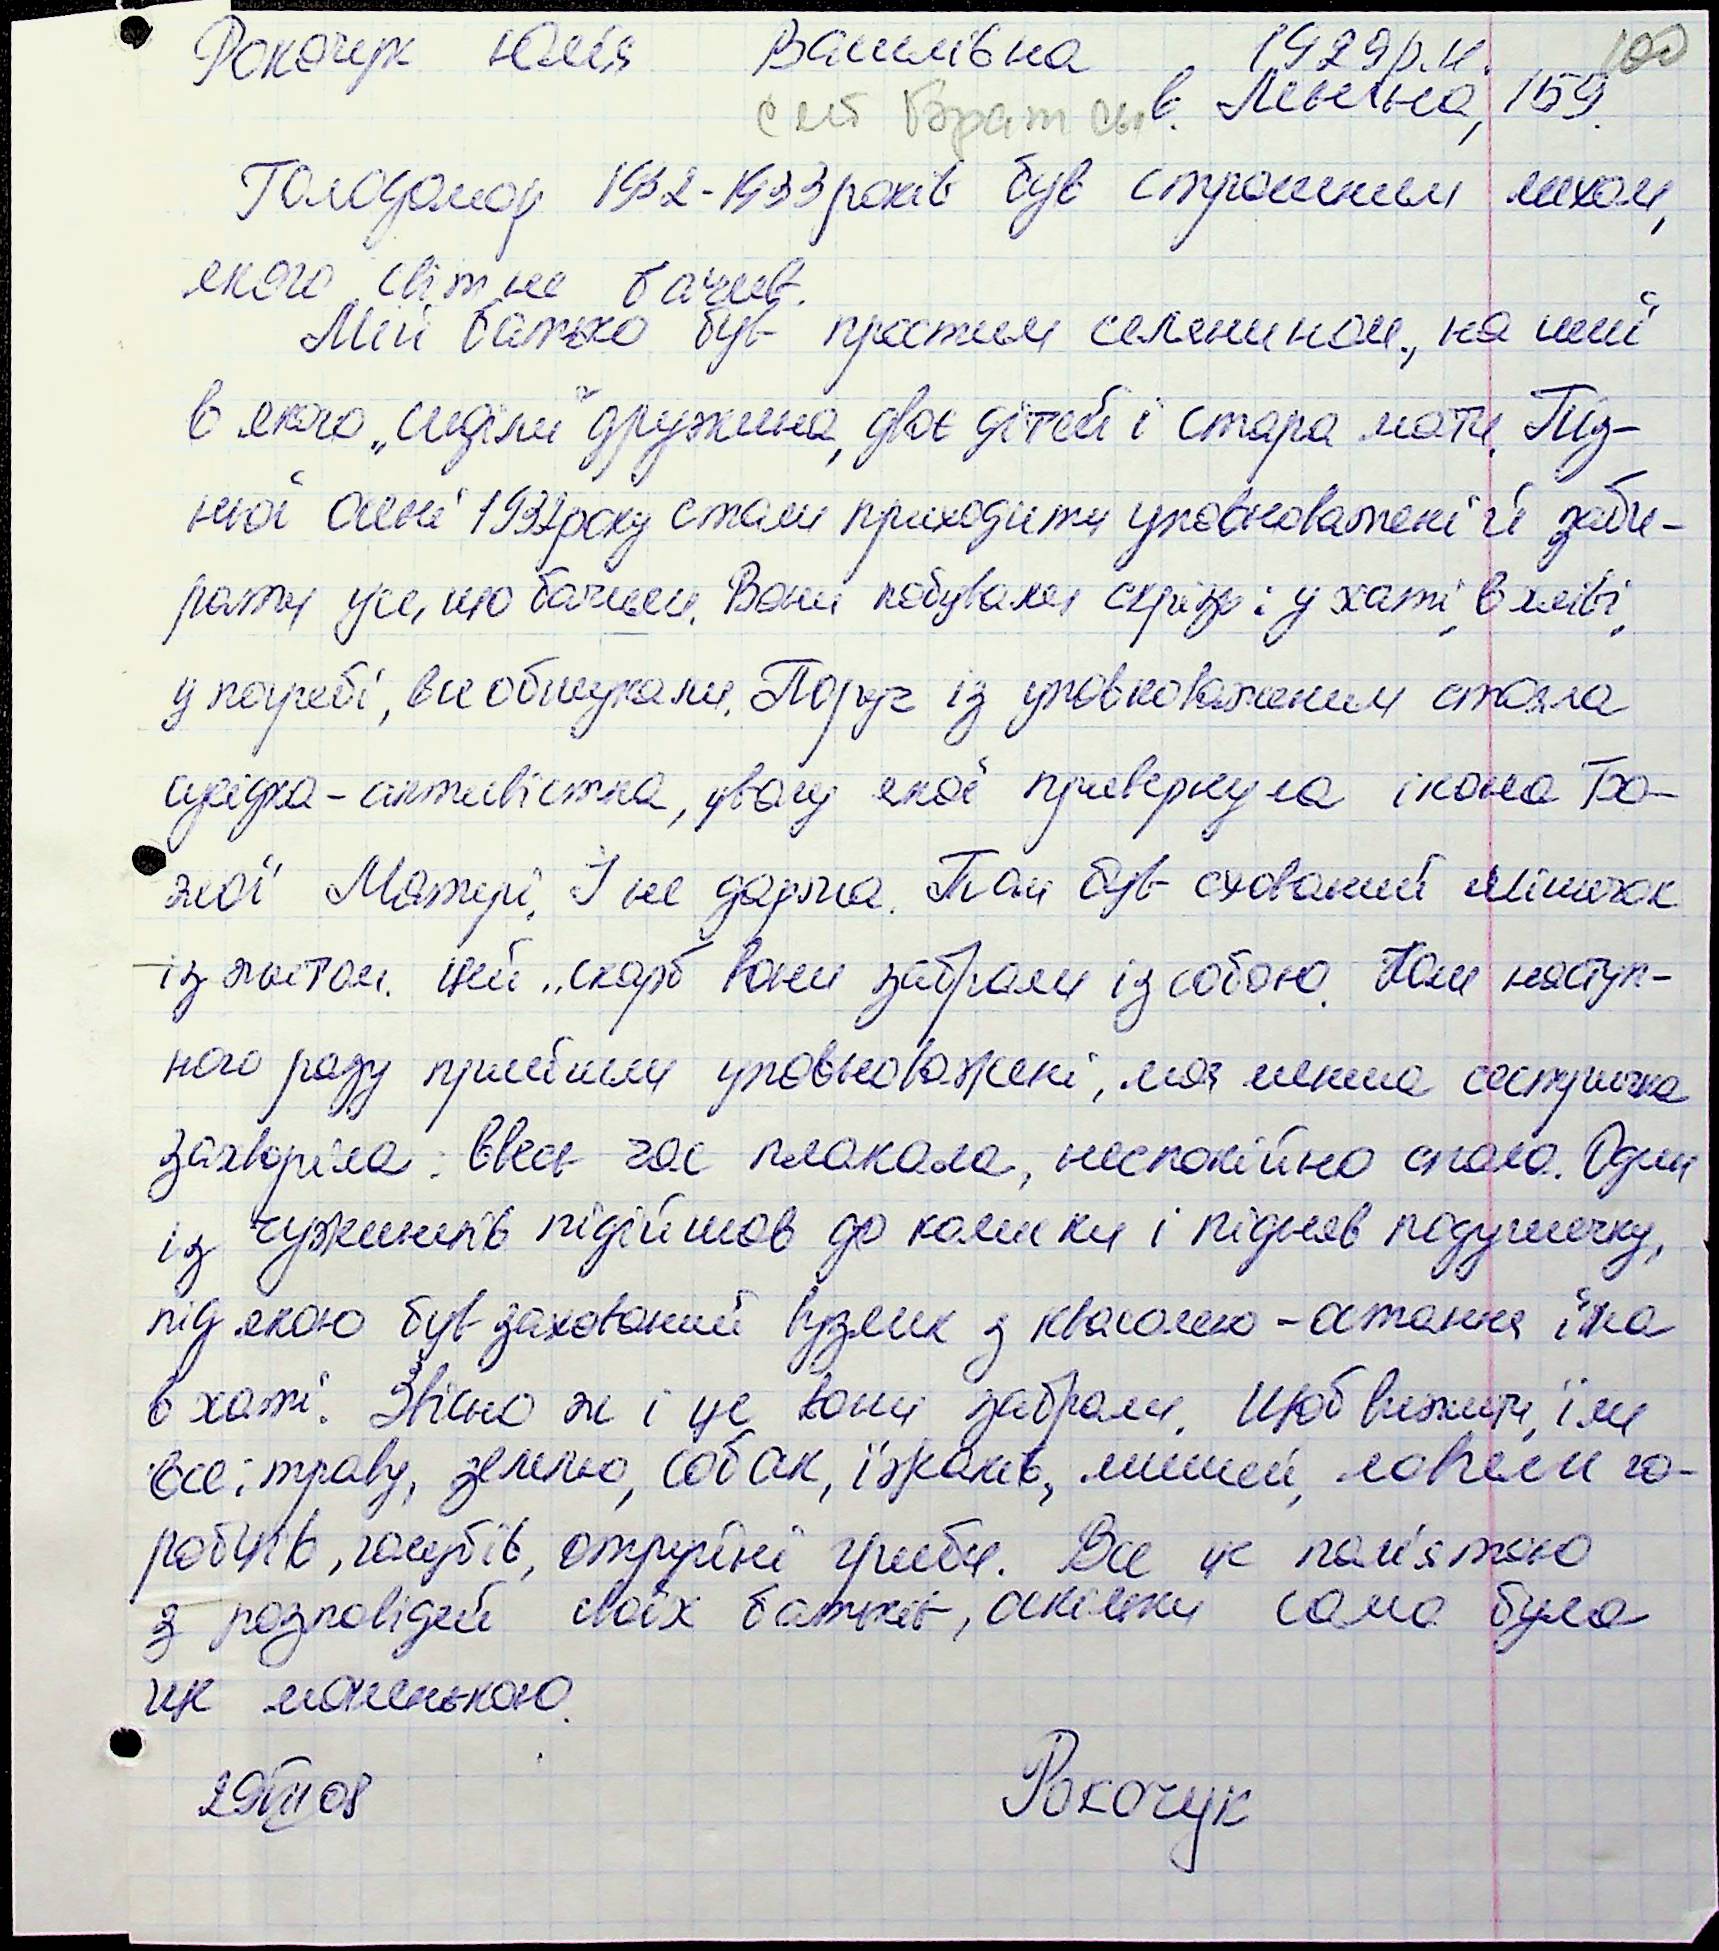 Рокочук Юлія Василівна 1929р.н. 100
смт Братськ в. Леніна, 159.
Голодомор 1932-1933 років був страшним лихом,
якого світ не бачив.
Мій батько був простим селянином, на шиї
в якого „сиділи" дружина, двоє дітей і стара мати. Піз-
ньої осені 1932 року стали приходити уповноважені й заби-
рати усе, що бачили. Вони побували скрізь: у хаті, в хліві,
у погребі, все обшукали. Поруч із уповноваженим стояла
сусідка-активістка, увагу якої привернула ікона Бо-
жої Матері. І не дарма. Там був схований мішечок
із житом. Цей „скарб вони забрали із собою. Коли наступ-
ного разу прийшли уповноважені, моя менша сестричка
захворіла: ввесь час плакала, неспокійно спала. Один
із чужинців підійшов до колиски і підняв подушечку,
під якою був захований вузлик з квасолею - остання їжа
в хаті. Звісно ж і це вони забрали. Щоб вижити, їли
все: траву, землю, собак, їжаків, мишей, ловили го-
робців, голубів, отруйні гриби. Все це пам'ятаю
з розповідей своїх батьків, оскільки сама була
ще маленькою.
29 VII 08 Рокочук